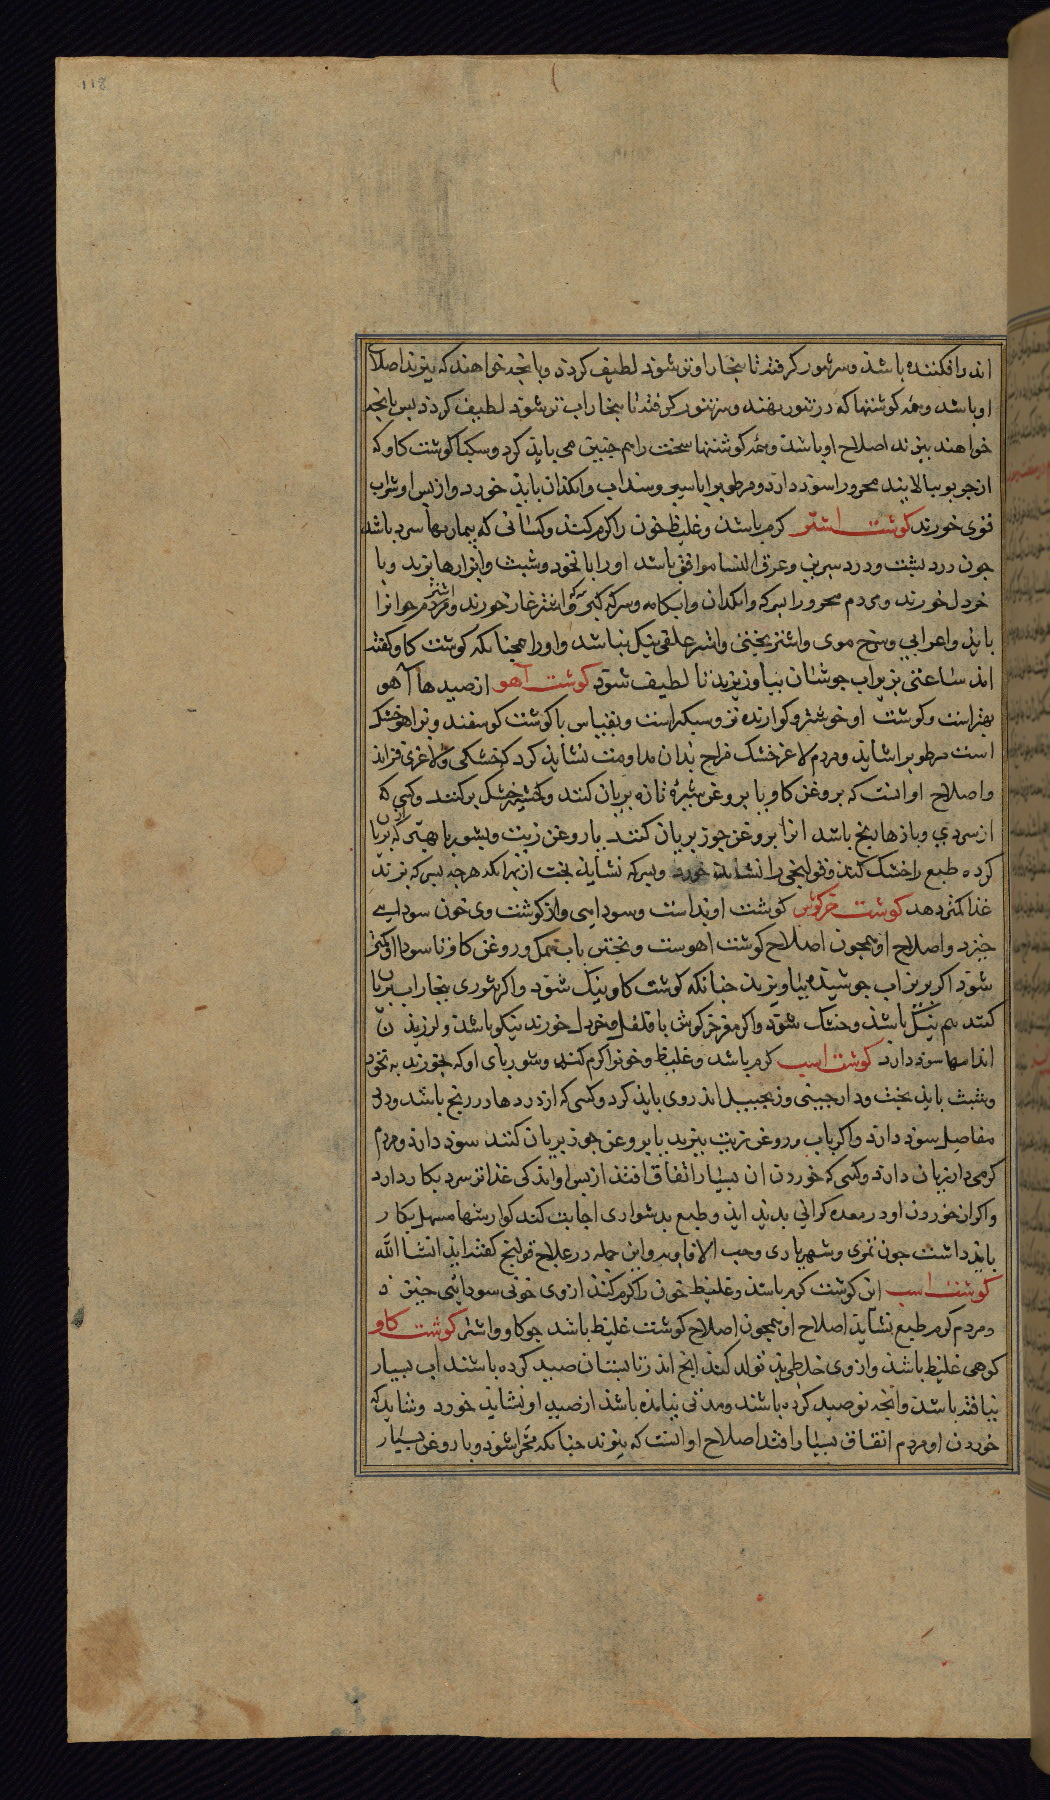 118
اند وافکنده باشد وسر تنور کرفته تا ببخار او تر شود لطیف کرده وبا نجه خواهند که بپزند اصلاح
او باشد وهمه کوشتها که در تنور نهند وسر تنور کرفته تا ببخار اب تر شود لطیف کردد بس با نجه
خواهند بپزند اصلاح او باشد وهمه کوشتها سخت را هم جنین می باید کرد وسکبا کوشت کاو که
از جربو ببالایند محرور را سود دارد ومرطوبرا با سیر وسداب وانکدان باید خورد واز بس او شراب
قوی خورند کوشت اشتر کرم باشد وغلیظ خون را کرم کند وکسانی که بیماریها سرد باشد
جون درد بشت ودرد سرین وعرق النسا موافق باشد او را با نخود وشبث وابزارها بزند وبا
خردل خورند ومردم محرور را بسرکه وانکدان وابکامه وسرکه واشترغاز خورند ومردم
باید واعرابی وسرخ موی واشتر بختی واشتر علفی نیک نباشد واورا همجنانکه کوشت کاو کفته
اند ساعتی بر اب جوشان بیاویزند تا لطیف شود کوشت آهو از صیدها آهو
بهتر است وکوشت او خوشتر وکوارنده تر وسبکتر است وبقیاس با کوشت کوسفند وبز اهو خشک
است مرطوبرا شاید ومردم لاغر خشک مزاج بدان مداومت نشاید کرد که خشکی ولاغری فزاید
واصلاح او انست که بروغن کاو یا بروغن شیره تازه بریان کنند وکشنیز خشک برکنند وکسی که
از سردی وبادها برنج باشد انرا بروغن جوز بریان کنند یا روغن زیت وبشوربا بهتر که بریان
کرده طبع را خشک کند وقولنجی را نشاید خورد وبسرکه نشاید بخت از بهر انکه هرجه بسرکه بزند
غذا کمتر دهد کوشت خرکوش کوشت او بد است وسودایی واز کوشت وی خون سودایی
خیزد واصلاح او همجون اصلاح کوشت اهوست وبختن باب نمک وروغن کاو تا سودا او کمتر
شود اکر بر اب جوشیده بیاویزند جنانکه کوشت کاو نیک شود واکر بتنوری ببخار اب بریان
کنند هم نیک باشد وخشک شود واکر مغز خرکوش با فلفل وخردل خورند نیکو باشد ولرزیدن
اندامها سود دارد کوشت اسب کرم باشد وغلیظ وخونرا کرم کند وشوربای او که بخورند به نخود
وشبث باید بخت ودارجینی وزنجبیل اندر وی باید کرد وکسی که از دردها در رنج باشد ودر
مفاصل سود دارد واکر باب وروغن زیت بپزند یا بروغن جوز بریان کنند سود دارد ومردم
کرمی دار زیان دارد وکسی که خوردن ان بسیار اتفاق افتد از بس او اندکی غذا تر سرد بکار دارد
واکر از خوردن او در معده کرانی بدید اید وطبع بدشواری اجابت کند کوارشها مسهل بکار
باید داشت جون تمری وشهریاری وحب الافاویه واین جمله در علاج قولنج کفته اید انشا الله
کوشت اسب این کوشت کرم باشد وغلیظ خون را کرم کند از وی خونی سودایی خیزد
ومردم کرم طبع نشاید اصلاح او همجون اصلاح کوشت غلیظ باشد جو کاو واشتر کوشت کاو
کوهی غلیظ باشد واز وی خلطی بد تولد کند انج اندر تابستان صید کرده باشند اب بسیار
نیافته باشد وانجه نو صید کرده باشند ومدتی نیاید باشد از صید او نشاید خورد ونشاید که
خوردن او مردم اتفاق بسیار افتد اصلاح او انست که بپزند جنانکه مهرا شود وبا روغن بسیار